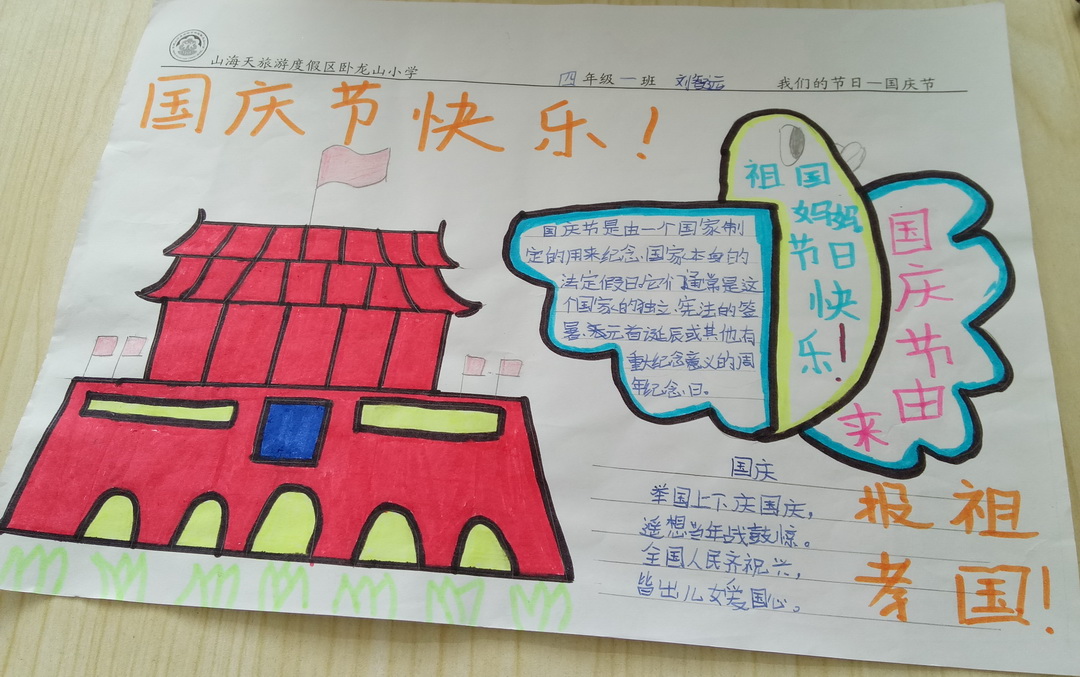 山海天旅游度假区卧龙山小学
四年级一班 刘智远 我们的节日—国庆节
国庆节快乐！
祖国
妈妈
节日
快
乐！
国庆节是由一个国家制
定的用来纪念国家本身的
法定假日。它们通常是这
个国家的独立、宪法的签
署、元首诞辰或其他有
重大纪念意义的周
年纪念日。
国庆节由来
国庆
举国上下庆国庆，
遥想当年战鼓惊。
全国人民齐祝兴，
皆出儿女爱国心。
报祖
孝国！